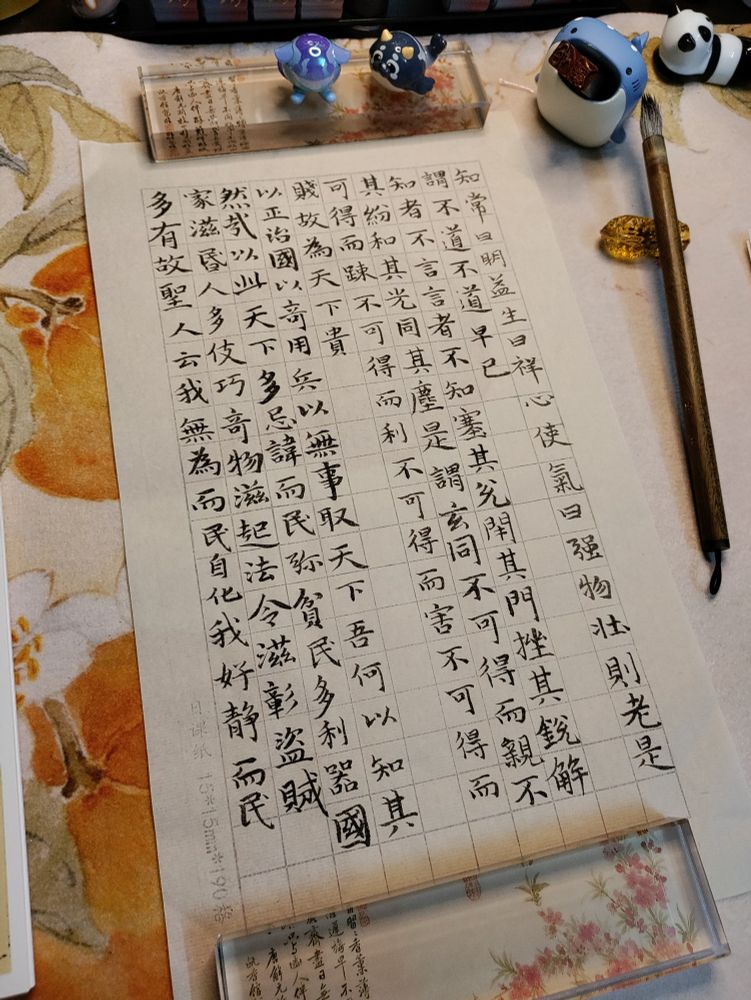 知常曰明益生曰祥心使氣曰强物壯則老是
謂不道不道早已
知者不言言者不知塞其兌閉其門挫其銳解
其紛和其光同其塵是謂玄同不可得而親不
可得而踈不可得而利不可得而害不可得而
賤故為天下貴
以正治國以奇用兵以無事取天下吾何以知其
然哉以此天下多忌諱而民弥貧民多利器國
家滋昏人多伎巧奇物滋起法令滋彰盜賊
多有故聖人云我無為而民自化我好静而民
日课纸 15*15mm*190格